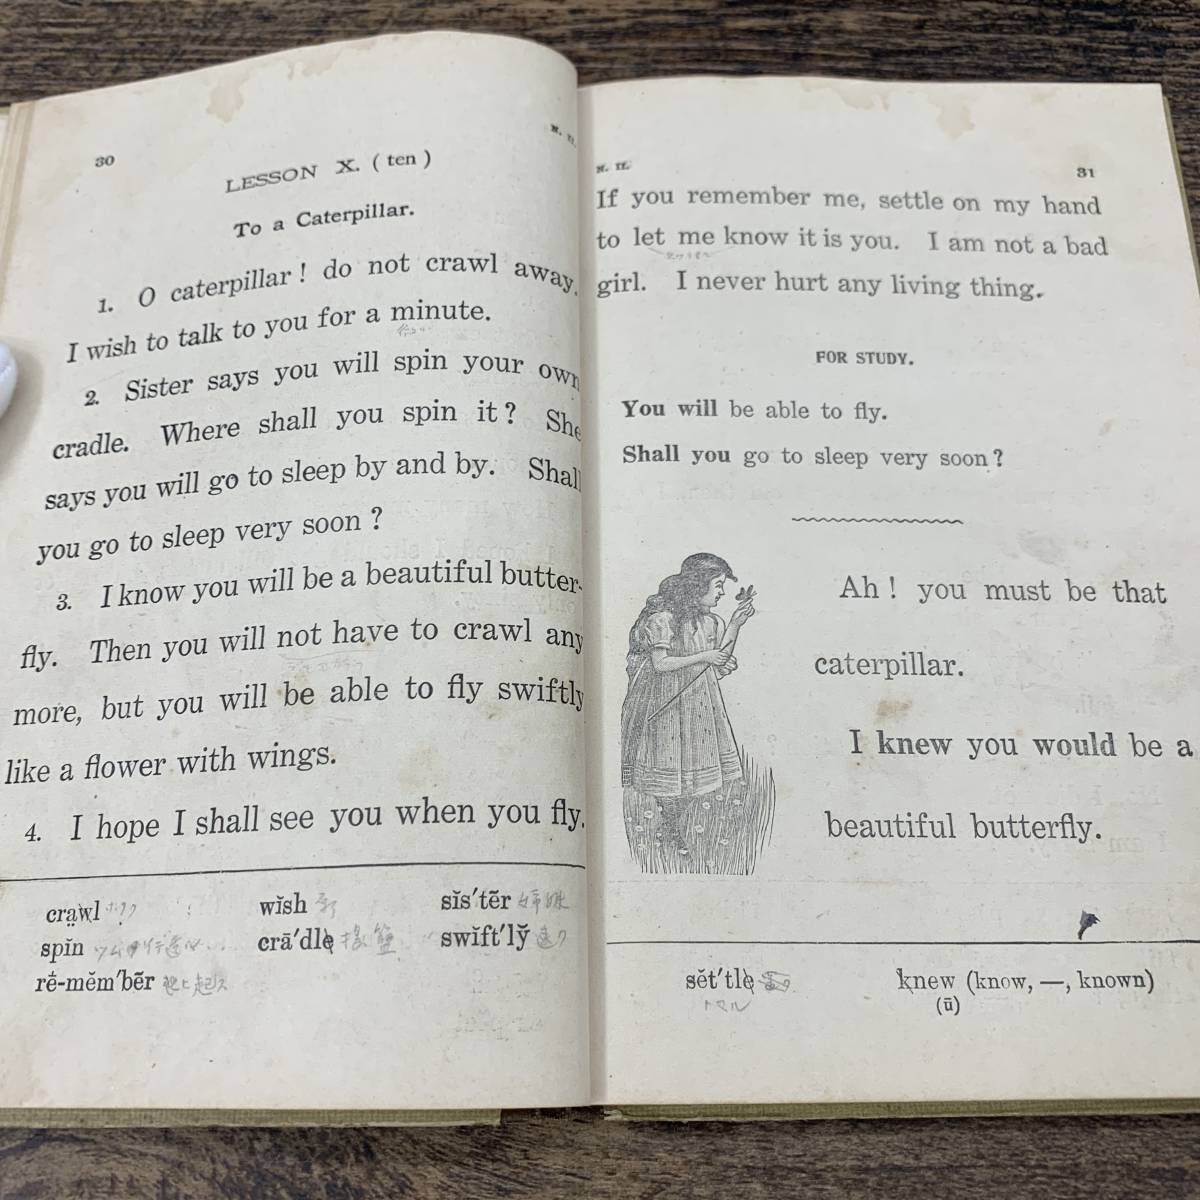 30
LESSON X. (ten)
To a Caterpillar.
1. O caterpillar! do not crawl away.
I wish to talk to you for a minute.
2. Sister says you will spin your own
cradle. Where shall you spin it? She
says you will go to sleep by and by. Shall
you go to sleep very soon?
3. I know you will be a beautiful butter-
fly. Then you will not have to crawl any
more, but you will be able to fly swiftly
like a flower with wings.
4. I hope I shall see you when you fly.
cra̤wl wĭsh 希 sĭs′tẽr 姉妹
spĭn crā′dle 揺籃 swĭft′lў 速ク
rē-mĕm′bẽr 想ヒ起ス
N. II. 31
If you remember me, settle on my hand
to let me know it is you. I am not a bad
girl. I never hurt any living thing.
FOR STUDY.
You will be able to fly.
Shall you go to sleep very soon?
Ah! you must be that
caterpillar.
I knew you would be a
beautiful butterfly.
sĕt′tle knew (know, —, known)
トマル (ū)